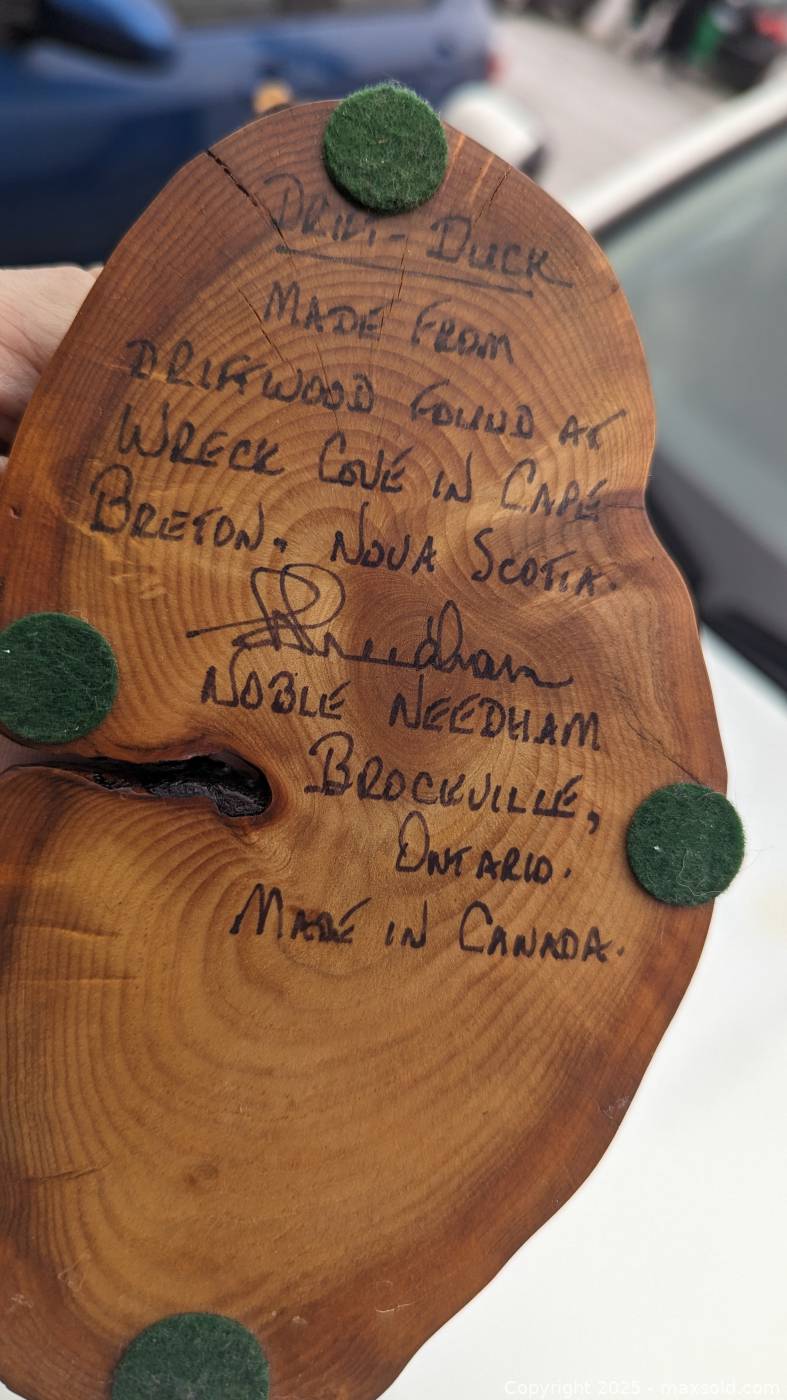 DRIFT-DUCK
MADE FROM
DRIFTWOOD FOUND AT
WRECK COVE IN CAPE
BRETON, NOVA SCOTIA.
Needham
NOBLE NEEDHAM
BROCKVILLE,
ONTARIO.
MADE IN CANADA.
Copyright 2025 - maxsold.com